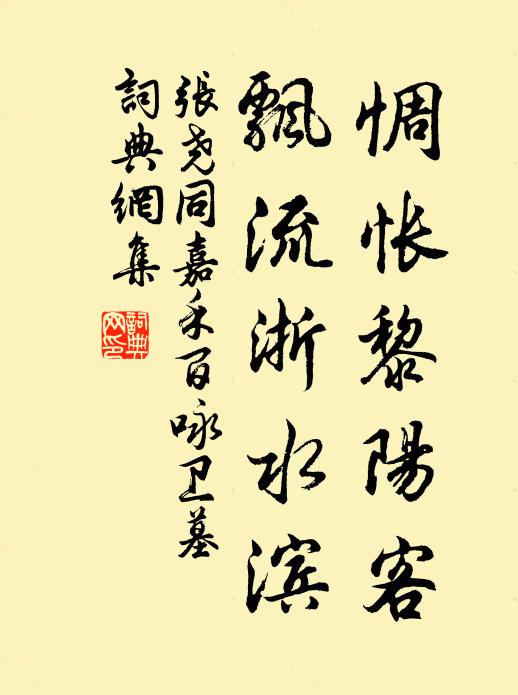 惆怅黎陽客
飄流浙水滨
張尧同嘉禾百咏卫墓
詞典網集
詞典
网印